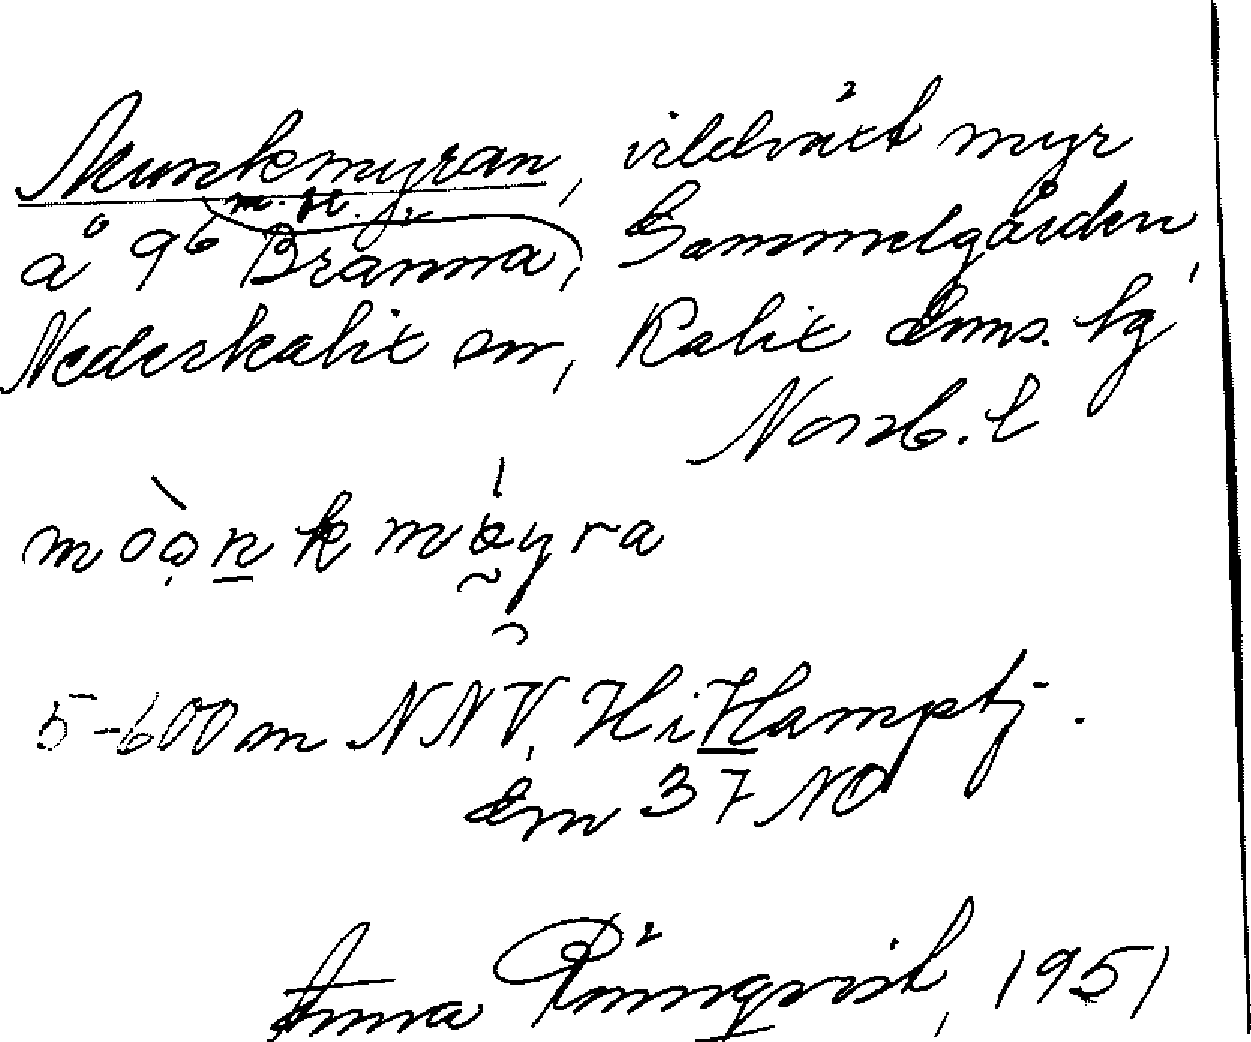 Munkmyran, vildväxt myr
m. fl.
å 9⁶ Branna, Gammelgården,
Nederkalix sn, Kalix dms. tg
Norrb. l
moọn̲k mǿyra
5-600 m NNV, Hitkamptj.
Em 37 NO
Anna Rönnqvist, 1951